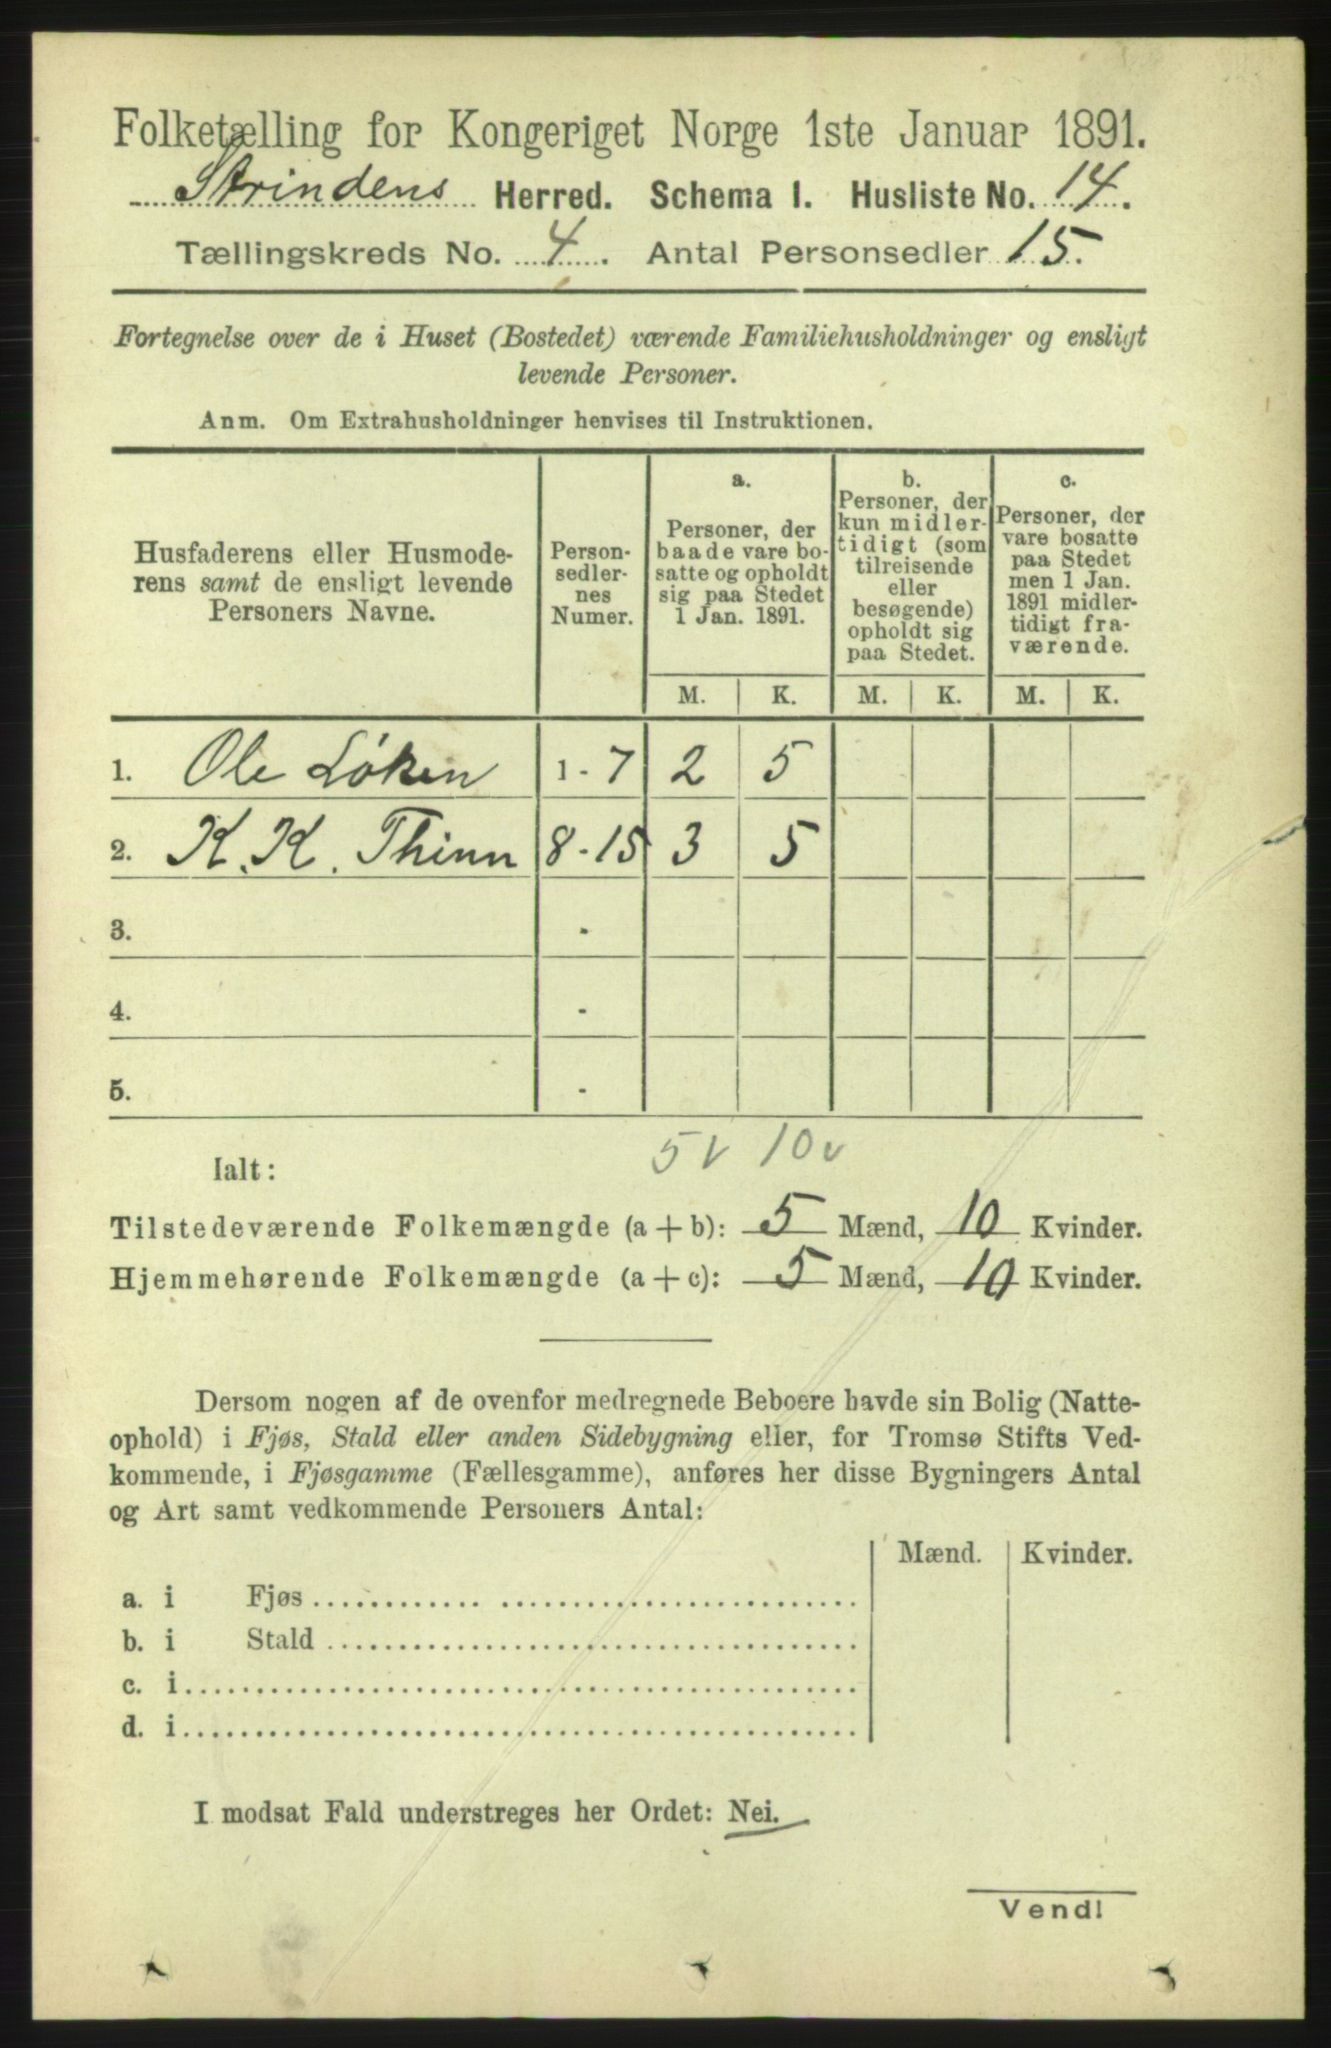 Folketælling for Kongeriget Norge 1ste Januar 1891.
Strindens Herred. Schema I. Husliste No. 14.
Tællingskreds No. 4. Antal Personsedler 15.
Fortegnelse over de i Huset (Bostedet) værende Familiehusholdninger og ensligt
levende Personer.
Anm. Om Extrahusholdninger henvises til Instruktionen.
Husfaderens eller Husmode-
rens samt de ensligt levende
Personers Navne.
Person-
sedler-
nes
Numer.
a.
Personer, der
baade vare bo-
satte og opholdt
sig paa Stedet
1 Jan. 1891.
b.
Personer, der
kun midler-
tidigt (som
tilreisende
eller
besøgende)
opholdt sig
paa Stedet.
c.
Personer, der
vare bosatte
paa Stedet
men 1 Jan.
1891 midler-
tidigt fra-
værende.
M. K. M. K. M. K.
1. Ole Løken 1 - 7 2 5
2. K. K. Thinn 8 - 15 3 5
3. -
4. -
5. -
5 v 10 v
Ialt:
Tilstedeværende Folkemængde (a + b): 5 Mænd, 10 Kvinder.
Hjemmehørende Folkemængde (a + c): 5 Mænd, 10 Kvinder.
Dersom nogen af de ovenfor medregnede Beboere havde sin Bolig (Natte-
ophold) i Fjøs, Stald eller anden Sidebygning eller, for Tromsø Stifts Ved-
kommende, i Fjøsgamme (Fællesgamme), anføres her disse Bygningers Antal
og Art samt vedkommende Personers Antal:
Mænd. Kvinder.
a. i Fjøs
b. i Stald
c. i
d. i
I modsat Fald understreges her Ordet: Nei.
Vend!